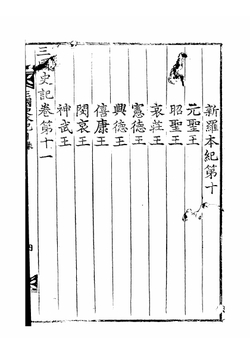 新羅本紀第十
元聖王
昭聖王
哀莊王
憲德王
興德王
僖康王
閔哀王
神武王
三國史記卷第十一